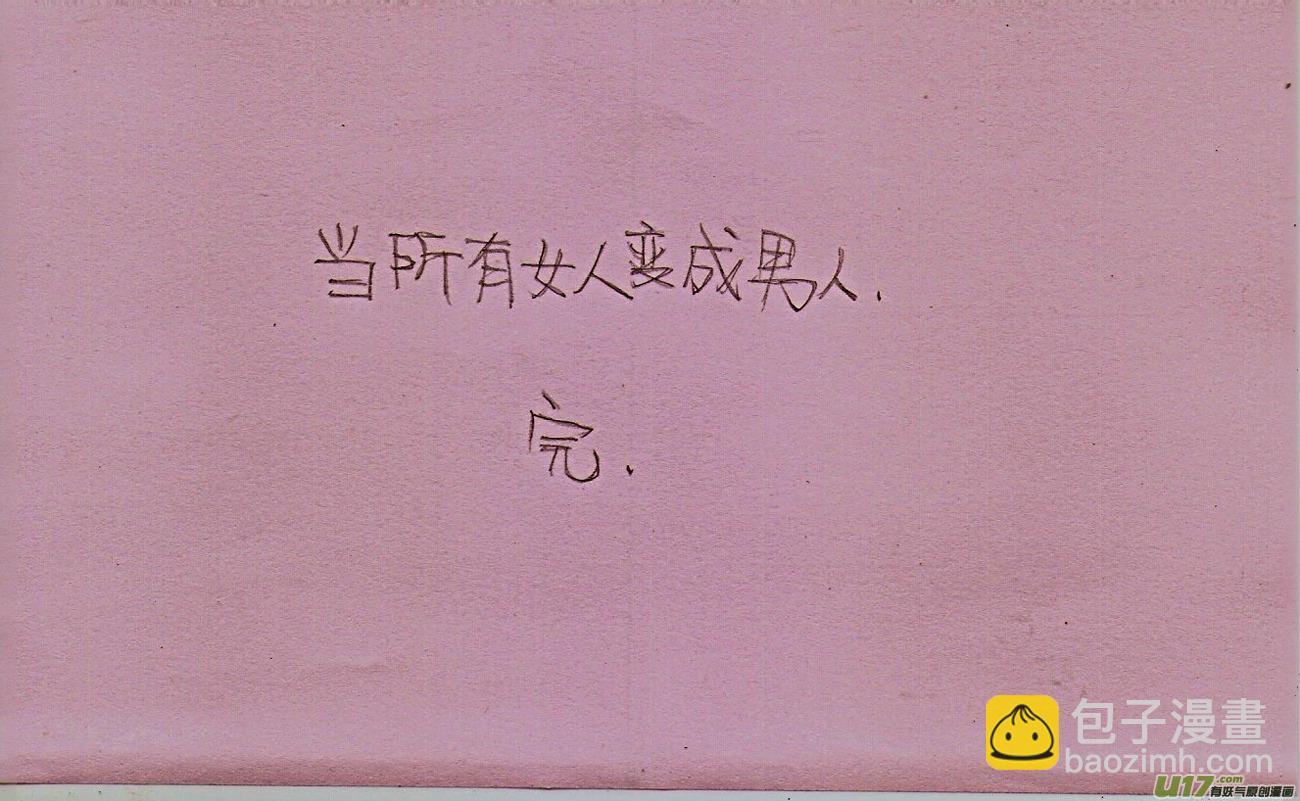 当所有女人变成男人.
完.
包子漫畫
baozimh.com
U17.com
有妖气原创漫画